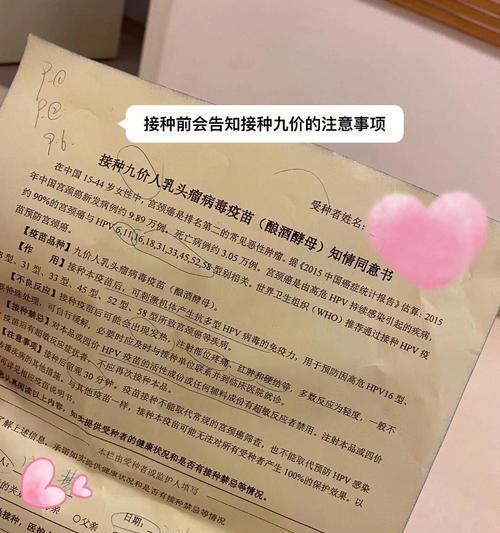 接种前会告知接种九价的注意事项
9.6
接种九价人乳头瘤病毒疫苗（酿酒酵母）知情同意书
受种者姓名：
在中国 15-44 岁女性中，宫颈癌是排名第二的常见恶性肿瘤。据《2015 中国癌症统计报告》估算：2015
年中国宫颈癌新发病例约 9.89 万例，死亡病例约 3.05 万例。宫颈癌是由高危 HPV 持续感染引起的疾病，
约 90%的宫颈癌与 HPV 6,11,16,18,31,33,45,52,58 型别相关。世界卫生组织（WHO）推荐通过接种 HPV 疫
苗预防宫颈癌。
【疫苗品种】九价人乳头瘤病毒疫苗（酿酒酵母）。
【作 用】接种本疫苗后，可刺激机体产生抗多型 HPV 病毒的免疫力，用于预防因高危 HPV16 型、
型、31 型、33 型、45 型、52 型、58 型所致宫颈癌等疾病。
【不良反应】接种疫苗后可能会出现发热，注射部位疼痛、红肿和硬结等，多数反应为轻度，一般不
特殊处理，可自行缓解，必要时应及时与接种单位联系并到临床医院就诊。
【接种禁忌】对本品或四价 HPV 疫苗的活性成份或任何辅料成份有超敏反应者禁用。注射本品或四价
疫苗后有超敏反应症状者，不应再次接种本品。
【注意事项】接种后留观 30 分钟。疫苗接种不能取代常规的宫颈癌筛查，也不能取代预防 HPV 感染
疾病的其他措施。与其他疫苗一样，接种本疫苗可能无法对所有受种者产生 100%的保护效果。以
可详见相应疫苗说明书。
阅读以上内容，如实提供受种者的健康状况和是否有接种禁忌等情况。
本栏由受种者或监护人填写
了解上述信息，承诺如实提供受种者的健康状况和是否有接种禁忌等情况。
○父亲
日期：